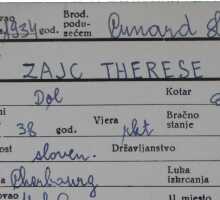 1934 god. Brod. podu- zećem Cunard
ZAJC THERESE
Dol Kotar
38 god. Vjera rkt Bračno stanje
ost sloven. Državljanstvo
Cherbourg Luka iskrcanja
ovao U mjesto